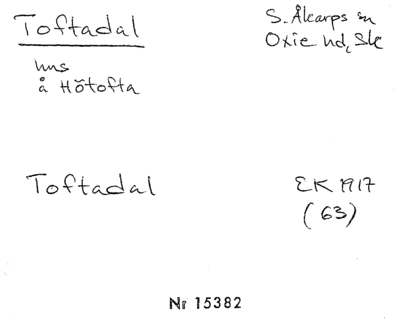 Toftadal
S. Åkarps sn
Oxie hd, Sk
hus
å Hötofta
Toftadal
EK 1917
(63)
Nr 15382